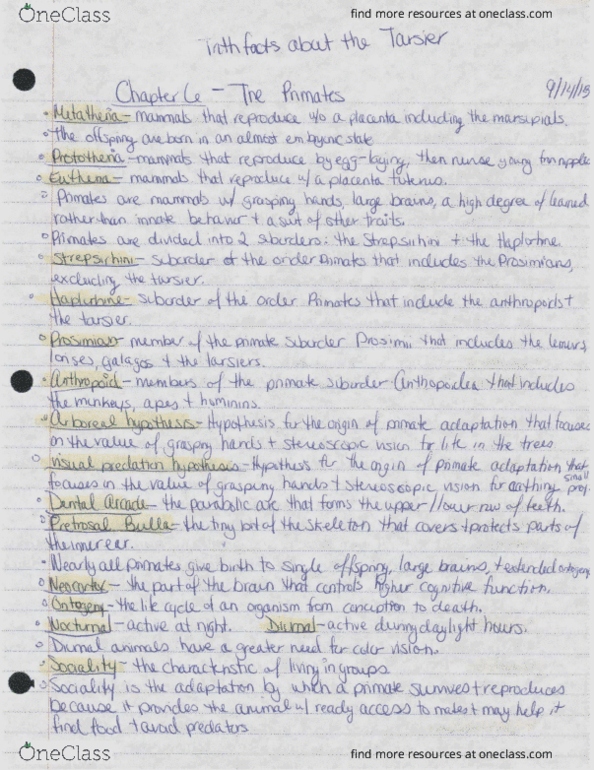 OneClass
find more resources at oneclass.com
facts about the Tarsier
Chapter 6 - The Primates 9/14/15
• Metatheria - mammals that reproduce w/o a placenta including the marsupials.
• The offspring are born in an almost embryonic state
• Prototheria - mammals that reproduce by egg-laying, then nurse young from nipple
• Eutheria - mammals that reproduce w/ a placenta + uterus.
• Primates are mammals w/ grasping hands, large brains, a high degree of learned
rather than innate behavior + a suit of other traits.
• Primates are divided into 2 suborders: the Strepsirhini + the Haplorhine.
• Strepsirhini - suborder of the order Primates that includes the Prosimians,
excluding the tarsier.
• Haplorhine - suborder of the order Primates that include the anthropoids +
the tarsier.
• Prosimian - member of the primate suborder Prosimii that includes the lemurs,
lorises, galagos + the tarsiers.
• Anthropoid - members of the primate suborder Anthropoidea that includes
the monkeys, apes + hominins.
• Arboreal hypothesis - Hypothesis for the origin of primate adaptation that focuses
on the value of grasping hands + stereoscopic vision for life in the trees.
• Visual predation hypothesis - Hypothesis for the origin of primate adaptation that
focuses on the value of grasping hands + stereoscopic vision for catching small prey.
• Dental Arcade - the parabolic arc that forms the upper/lower row of teeth.
• Pretrosal Bulla - the tiny bit of the skeleton that covers + protects parts of
the inner ear.
• Nearly all primates give birth to single offspring, large brains, + extended ontogeny
• Neocortex - the part of the brain that controls higher cognitive function.
• Ontogeny - the life cycle of an organism from conception to death.
• Nocturnal - active at night. Diurnal - active during daylight hours.
• Diurnal animals have a greater need for color vision.
• Sociality - the characteristic of living in groups.
• Sociality is the adaptation by which a primate survives + reproduces
because it provides the animal w/ ready access to mates + may help it
find food + avoid predators
OneClass
find more resources at oneclass.com